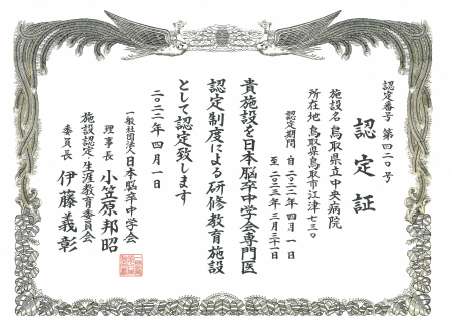 認定番号 第四二〇号
認定証
施設名 鳥取県立中央病院
所在地 鳥取県鳥取市江津七三〇
認定期間 自 二〇二二年 四月 一日
至 二〇二三年 三月三十一日
貴施設を日本脳卒中学会専門医
認定制度による研修教育施設
として認定致します
二〇二二年 四月一日
一般社団法人日本脳卒中学会
理事長 小笠原邦昭
施設認定・生涯教育委員会
委員長 伊藤義彰